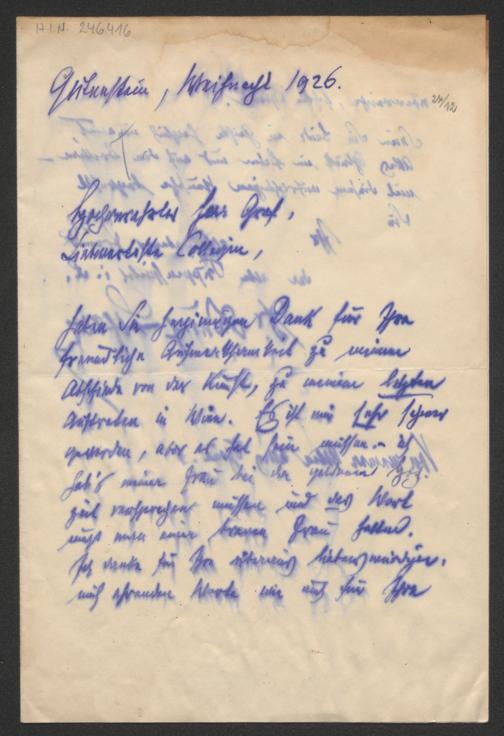 H.I.N. 246416
Gutenstein, Weihnacht 1926.
24/12
Hochverehrter Herr Graf,
Liebwerteste Collegin,
haben Sie herzinnigen Dank für Ihre
freundliche Aufmerksamkeit zu meinem
Abschiede von der Kunst, zu meinem letzten
Auftreten in Wien. Es ist mir sehr schwer
geworden, aber es hat sein müssen. – ich
hab's meiner Frau bei der goldenen Hoch-
zeit versprechen müssen und das Wort
muss man einer braven Frau halten.
Ich danke für Ihre überaus liebenswürdigen,
mich ehrenden Worte wie auch für Ihre